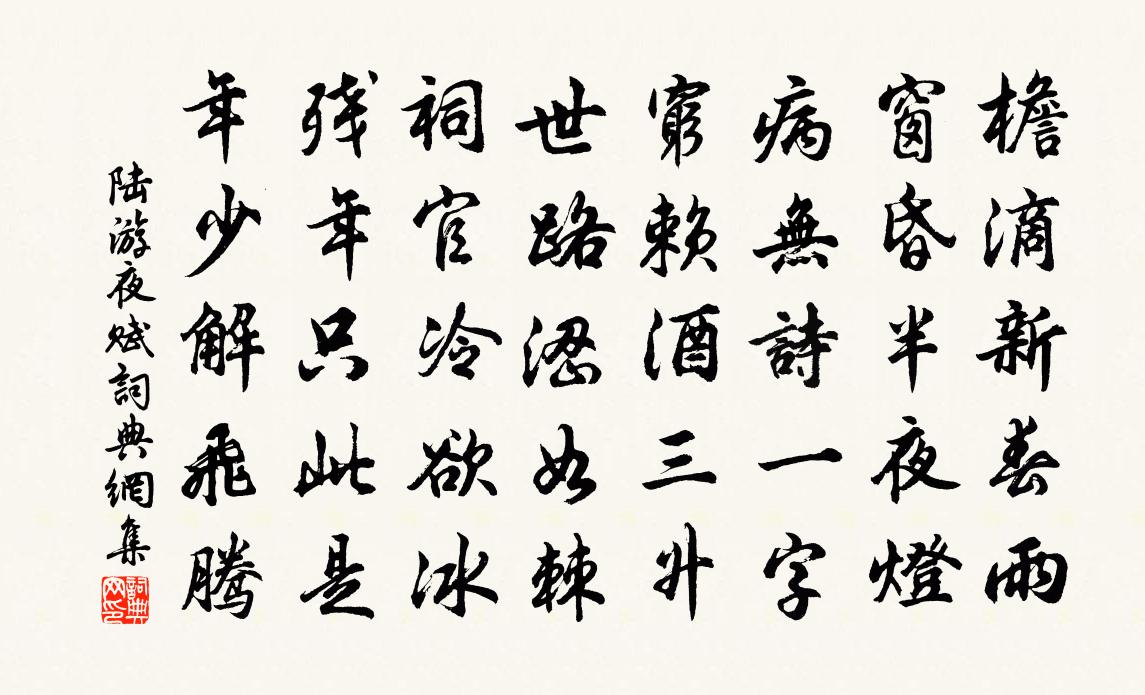 檐滴新春雨
窗昏半夜燈
病無詩一字
窮賴酒三升
世路澀如棘
祠官冷欲冰
残年只此是
年少解飛騰
陆游夜赋詞典網集
詞典網印